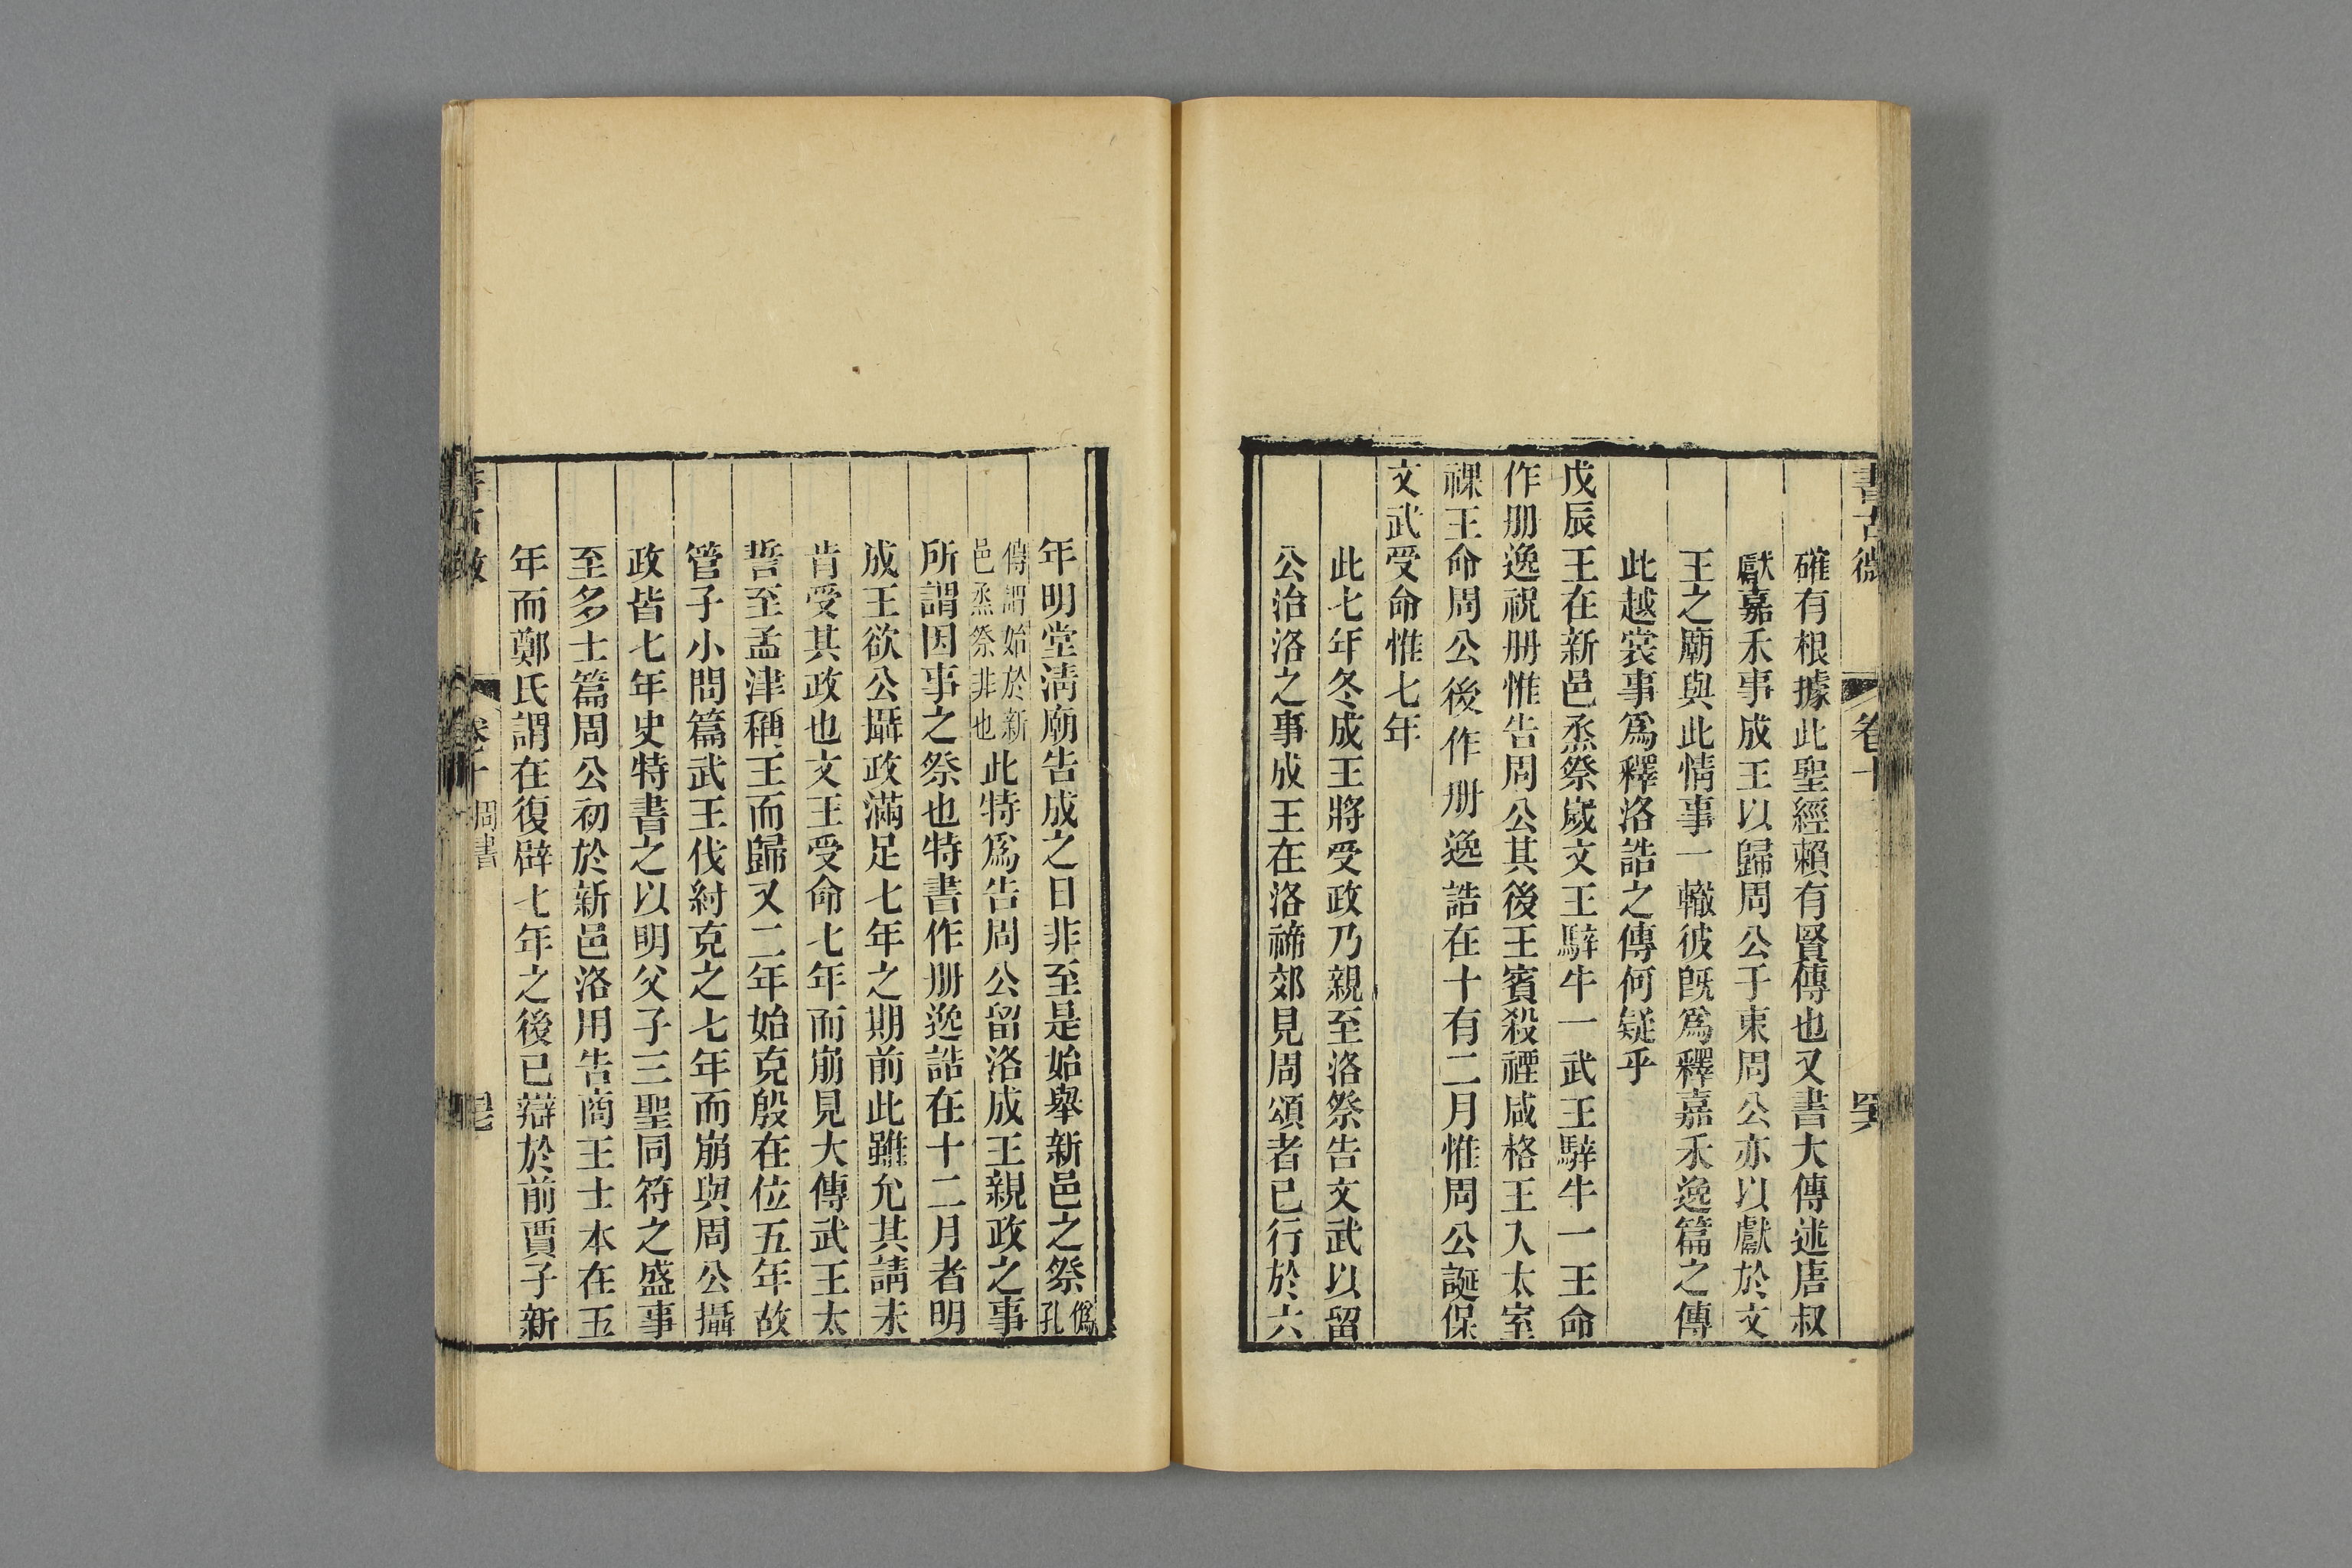 書古微 卷十
確有根據此聖經賴有賢傳也又書大傳述唐叔
獻嘉禾事成王以歸周公于東周公亦以獻於文
王之廟與此情事一轍彼旣爲釋嘉禾逸篇之傳
此越裳事爲釋洛誥之傳何疑乎
戊辰王在新邑烝祭歲文王騂牛一武王騂牛一王命
作册逸祝册惟告周公其後王賓殺禋咸格王入太室
祼王命周公後作册逸誥在十有二月惟周公誕保
文武受命惟七年
此七年冬成王將受政乃親至洛祭告文武以留
公治洛之事成王在洛禘郊見周頌者已行於六
年明堂淸廟告成之日非至是始舉新邑之祭僞孔
傳謂始於新
邑烝祭非也
此特爲告周公留洛成王親政之事
所謂因事之祭也特書作册逸誥在十二月者明
成王欲公攝政滿足七年之期前此雖允其請未
肯受其政也文王受命七年而崩見大傳武王太
誓至孟津稱王而歸又二年始克殷在位五年故
管子小問篇武王伐紂克之七年而崩與周公攝
政皆七年史特書之以明父子三聖同符之盛事
至多士篇周公初於新邑洛用告商王士本在五
年而鄭氏謂在復辟七年之後已辯於前賈子新
卷十 周書